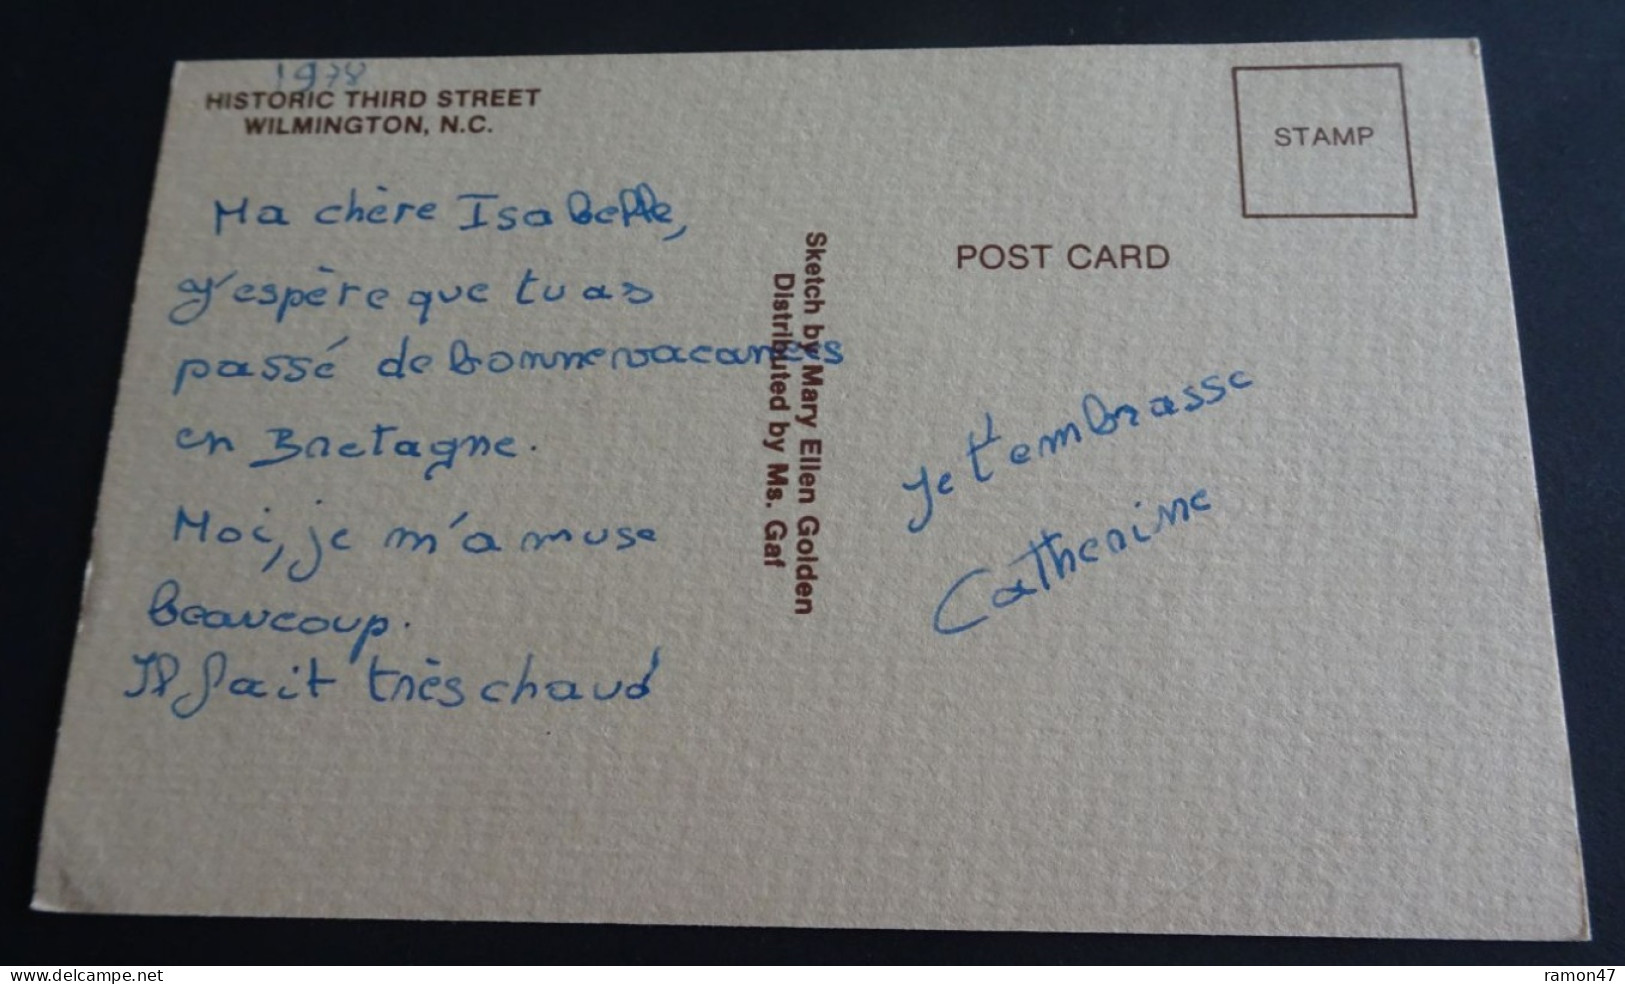 1978
HISTORIC THIRD STREET
WILMINGTON, N.C.
STAMP
POST CARD
Ma chère Isabelle,
J'espère que tu as
passé de bonne vacances
en Bretagne.
Moi, je m'amuse
beaucoup.
Il fait très chaud
Sketch by Mary Ellen Golden
Distributed by Ms. Gaf
Je t'embrasse
Catherine
www.delcampe.net
ramon47